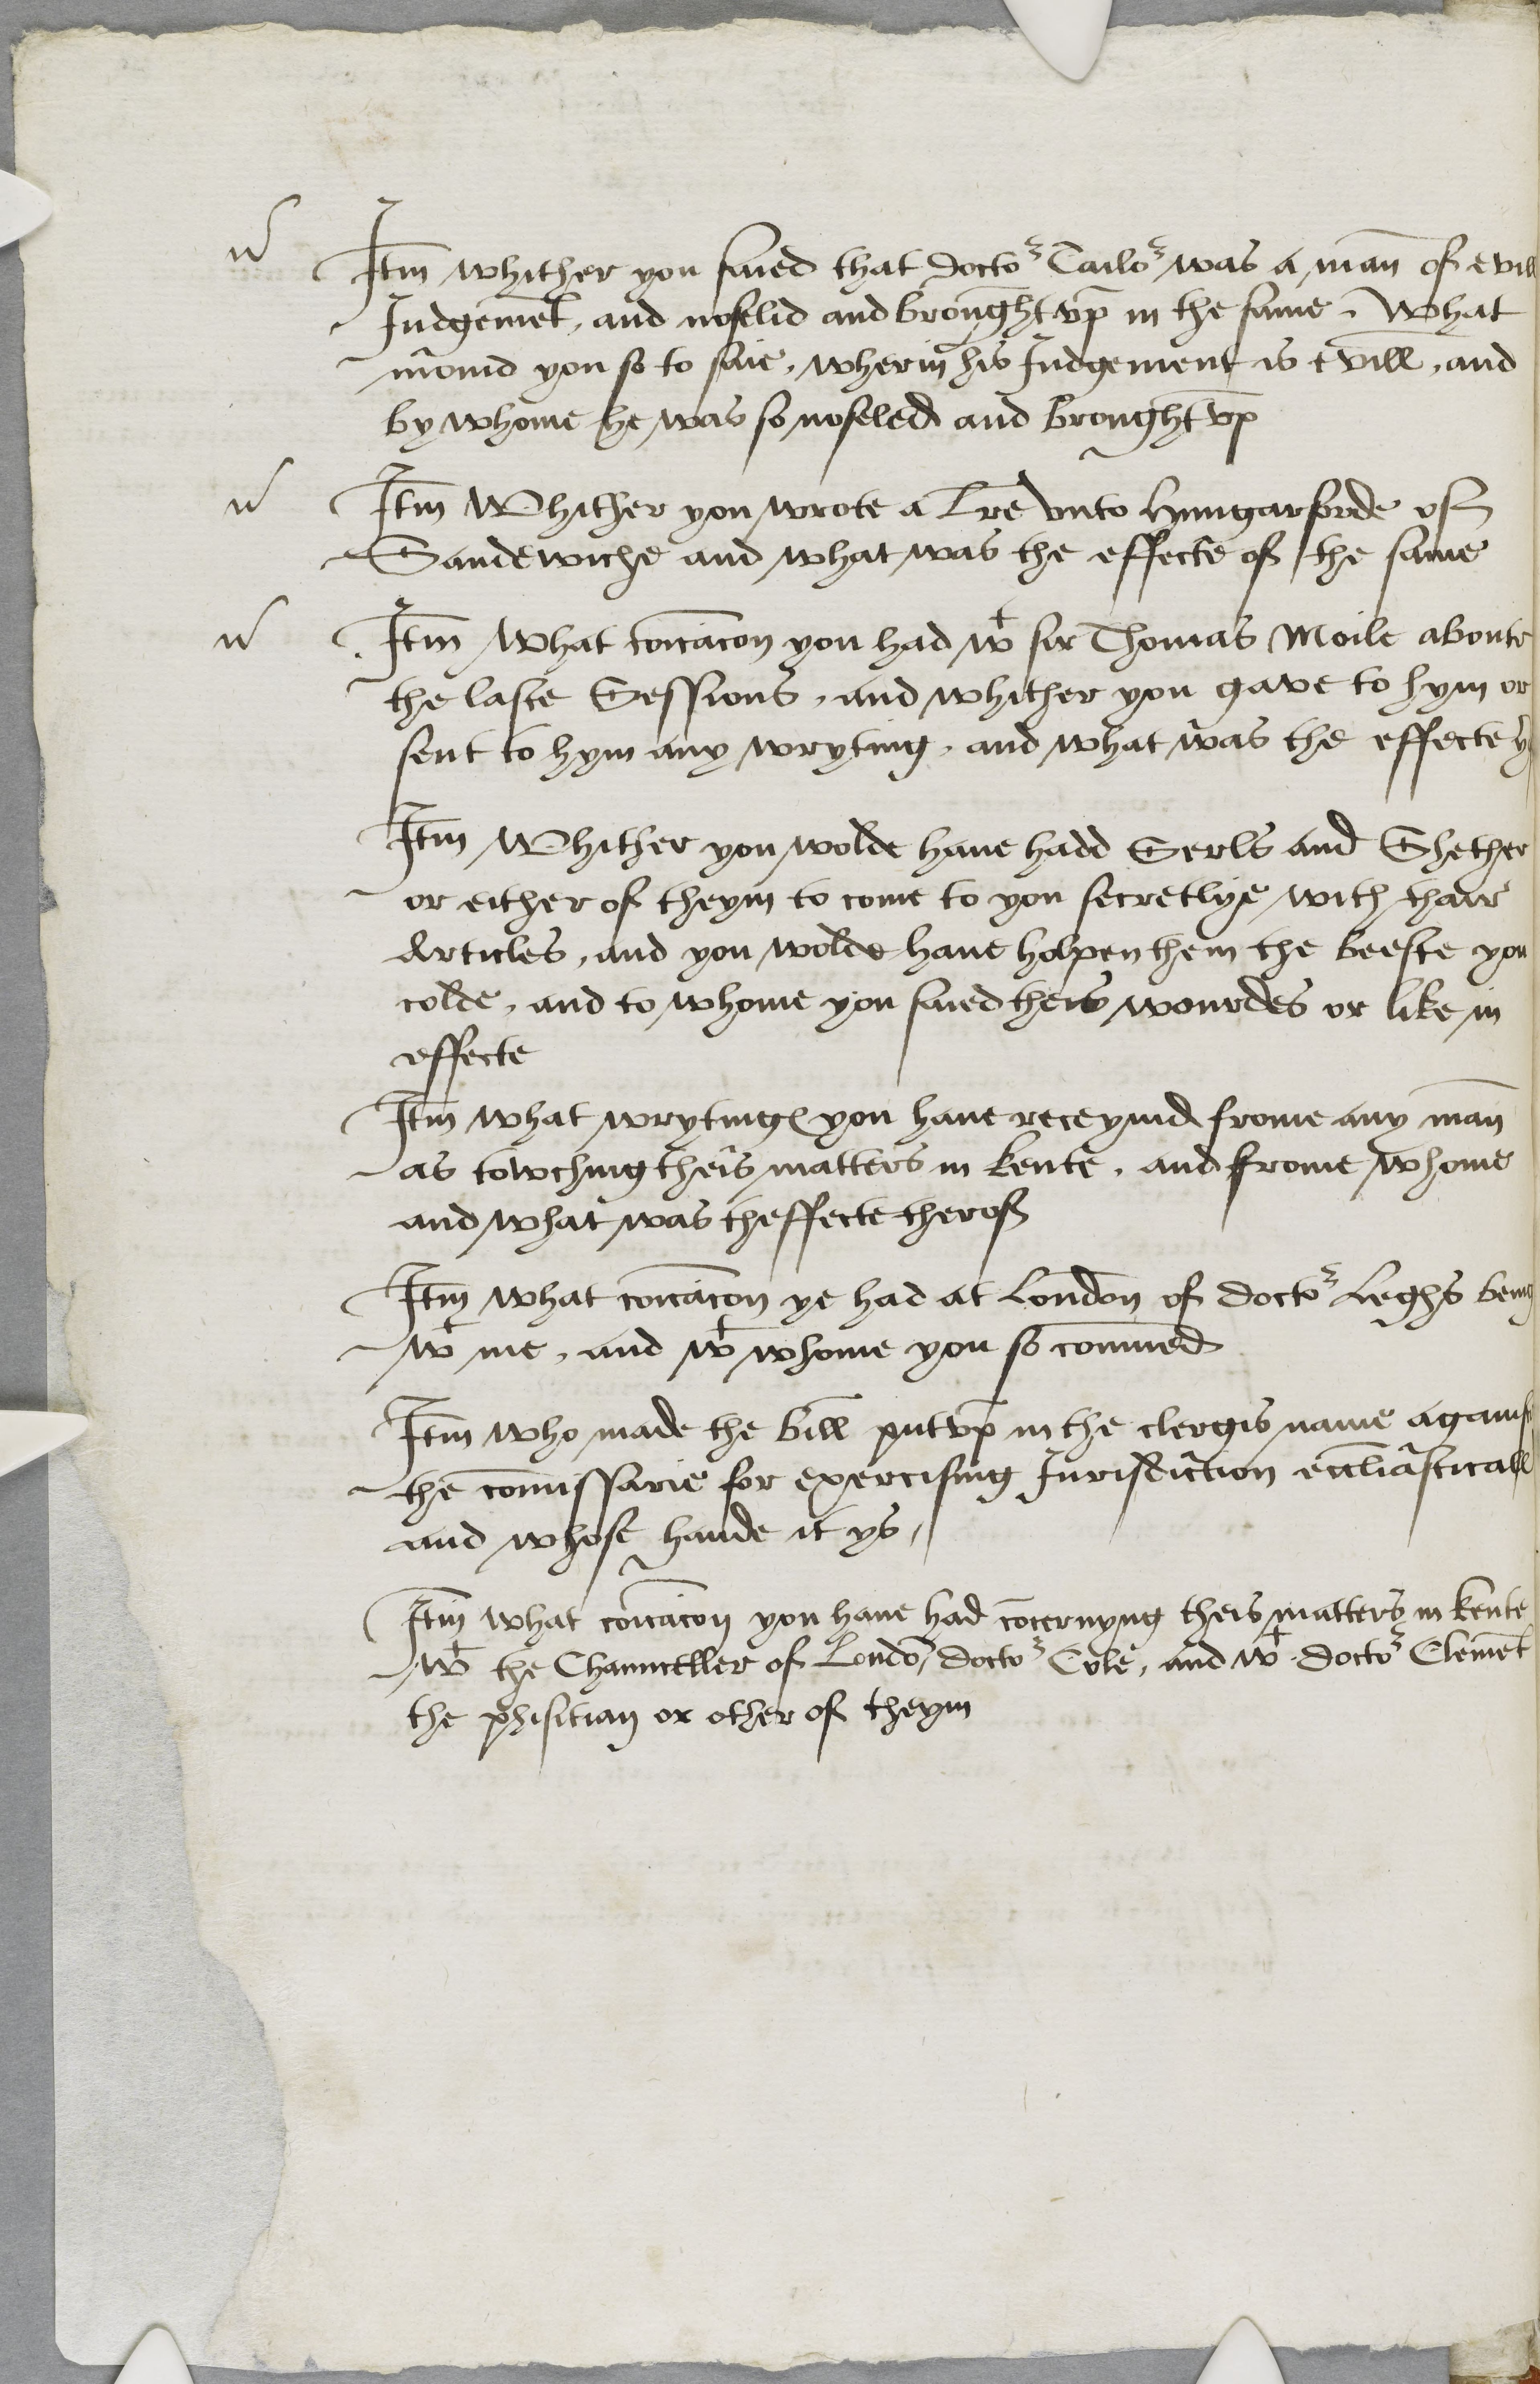 Itm whither you saied that docto^r Tailo^r was a man̄ of evill
Judgemēt, and noselid and brought vp in the same. What
movid you so to saie, wherin his Judgement is evill, and
by whome he was so noseled and brought vp
Itm Whither you wrote a l̄re vnto Hungarforde of
Sandewiche and what was the effecte of the same
Itm What coīcacōn you had w^t sir Thomas Moile aboute
the laste Sessions, and whither you gave to hym or
sent to hym any wryting, and what was the effecte
Itm Whither you wolde haue hadd Serls and Shether
or either of theym to come to you secretlye with thair
Articles, and you wolde haue holpen them the beeste you
colde, and to whome you saied theis wourdes or like in
effecte
Itm what wrytinges you haue receyuid frome any man̄
as towching theis matters in kente, and frome whome
and what was theffecte therof
Itm what coīcacōn ye had at London of docto^r Leghs being
w^t me, and w^t whome you so com̄ned
Itm who made the bill put vp in the clergis name against
the com̄issarie for exercising Jurisdiction eccl̄iasticall
and whose hande it ys,
Itm what coīcacōn you haue had cōcernyng theis matters in kente
w^t the Chaunceller of Londō, docto^r Cole, and w^t docto^r Clemēt
the phisitian or other of theym